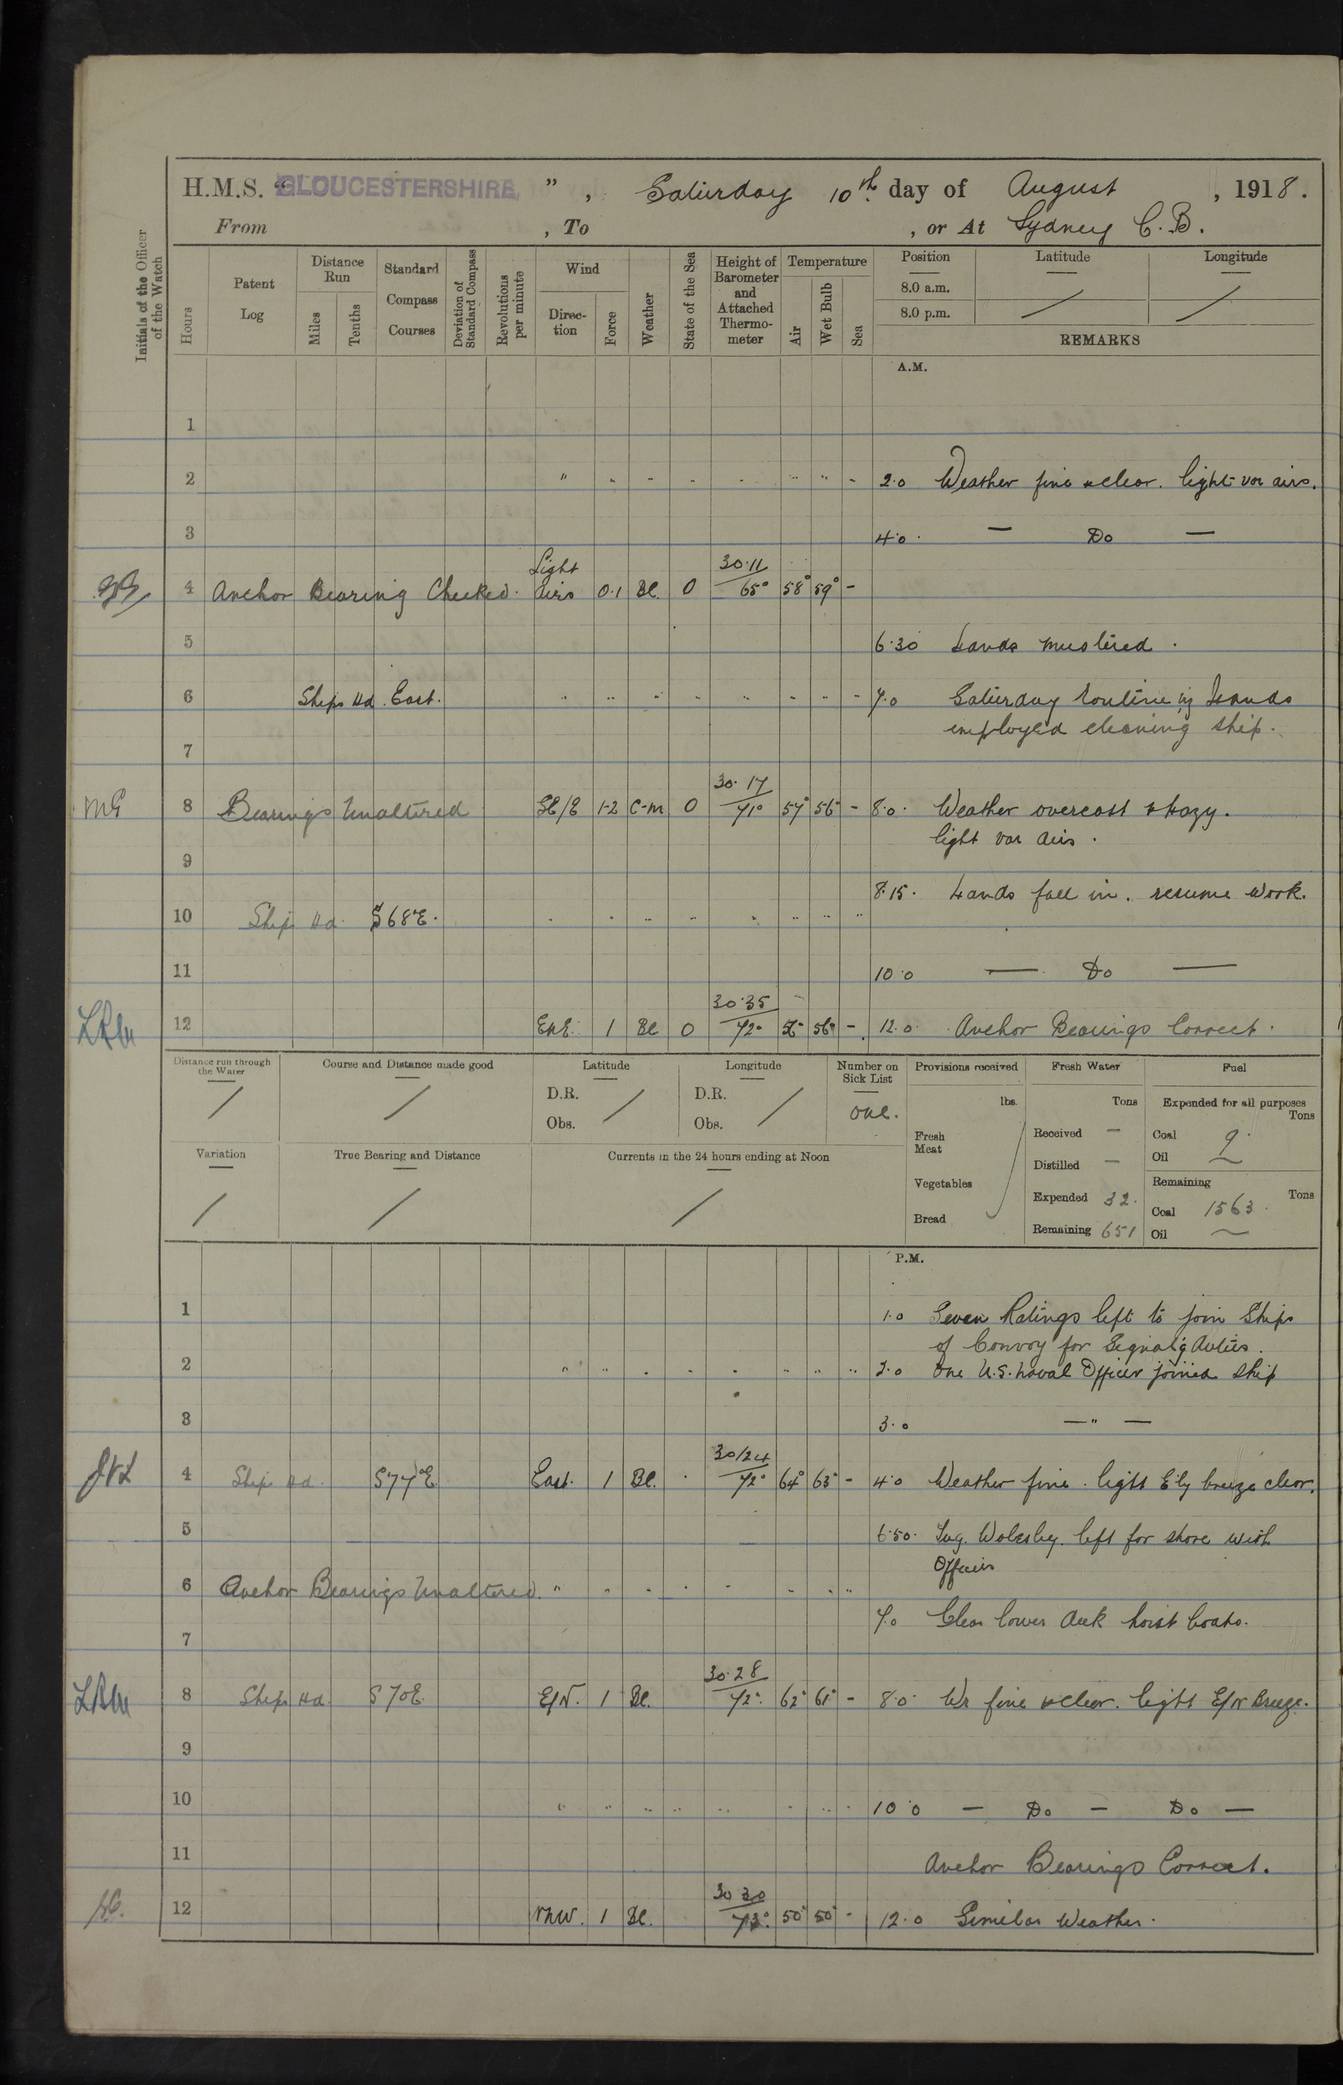 H.M.S. "GLOUCESTERSHIRE", Saturday 10th day of August, 1918.
From , To , or At Sydney C.B.
Initials of the Officer of the Watch
Hours
Patent Log
Distance Run
Miles
Tenths
Standard Compass Courses
Deviation of Standard Compass
Revolutions per minute
Wind
Direction
Force
Weather
State of the Sea
Height of Barometer and Attached Thermometer
Temperature
Air
Wet Bulb
Sea
Position Latitude Longitude
8.0 a.m.
8.0 p.m.
REMARKS
A.M.
1
2 " - - - - " " - 2.0 Weather fine & clear. light var airs.
3 4.0 — Do —
4 Anchor Bearing Checked. Light Airs 0.1 Bc. 0 30.11 65° 58° 59° -
5 6.30 Hands mustered.
6 Ships Hd. East. " " " " " " " - 7.0 Saturday routine Hands
employed cleaning ship.
7
MG 8 Bearings Unaltered SE/E 1-2 C-m 0 30.17 71° 57° 56° - 8.0 Weather overcast & Hazy.
light var airs.
9
8.15 Hands fall in. resume work.
10 Ship Hd S68E.
11 10.0 — Do —
12 ENE. 1 Bc 0 30.35 72° 56° 56° - 12.0 Anchor Bearings Correct.
Distance run through the Water
Course and Distance made good
Latitude
D.R.
Obs.
Longitude
D.R.
Obs.
Number on Sick List
one.
Provisions received
lbs.
Fresh Meat
Vegetables
Bread
Fresh Water
Tons
Received —
Distilled —
Expended 32.
Remaining 651
Fuel
Expended for all purposes
Tons
Coal 9.
Oil
Remaining
Tons
Coal 1563.
Oil
Variation
True Bearing and Distance
Currents in the 24 hours ending at Noon
P.M.
1 1.0 Seven Ratings left to join Ships
of Convoy for Signal'g duties.
2 2.0 One U.S. Naval Officer joined ship
3 3.0 — " —
4 Ship Hd. S77°E East. 1 Bc. 30/24 72° 64° 63° - 4.0 Weather fine. light E'ly breeze clear.
5 6.50. Tug. Wolesley. left for shore with
Officers
6 Anchor Bearings Unaltered. " " - " - - " "
7.0 Clear lower deck hoist boats.
7
8 Ships Hd S70E. E/N. 1 Bc. 30.28 72° 62° 61° - 8.0 Wr fine & clear. light E/N Breeze.
9
10 10.0 — Do — Do —
11 Anchor Bearings Correct.
12 NNW. 1 Bc. 30 30 73° 50° 50° - 12.0 Similar Weather.